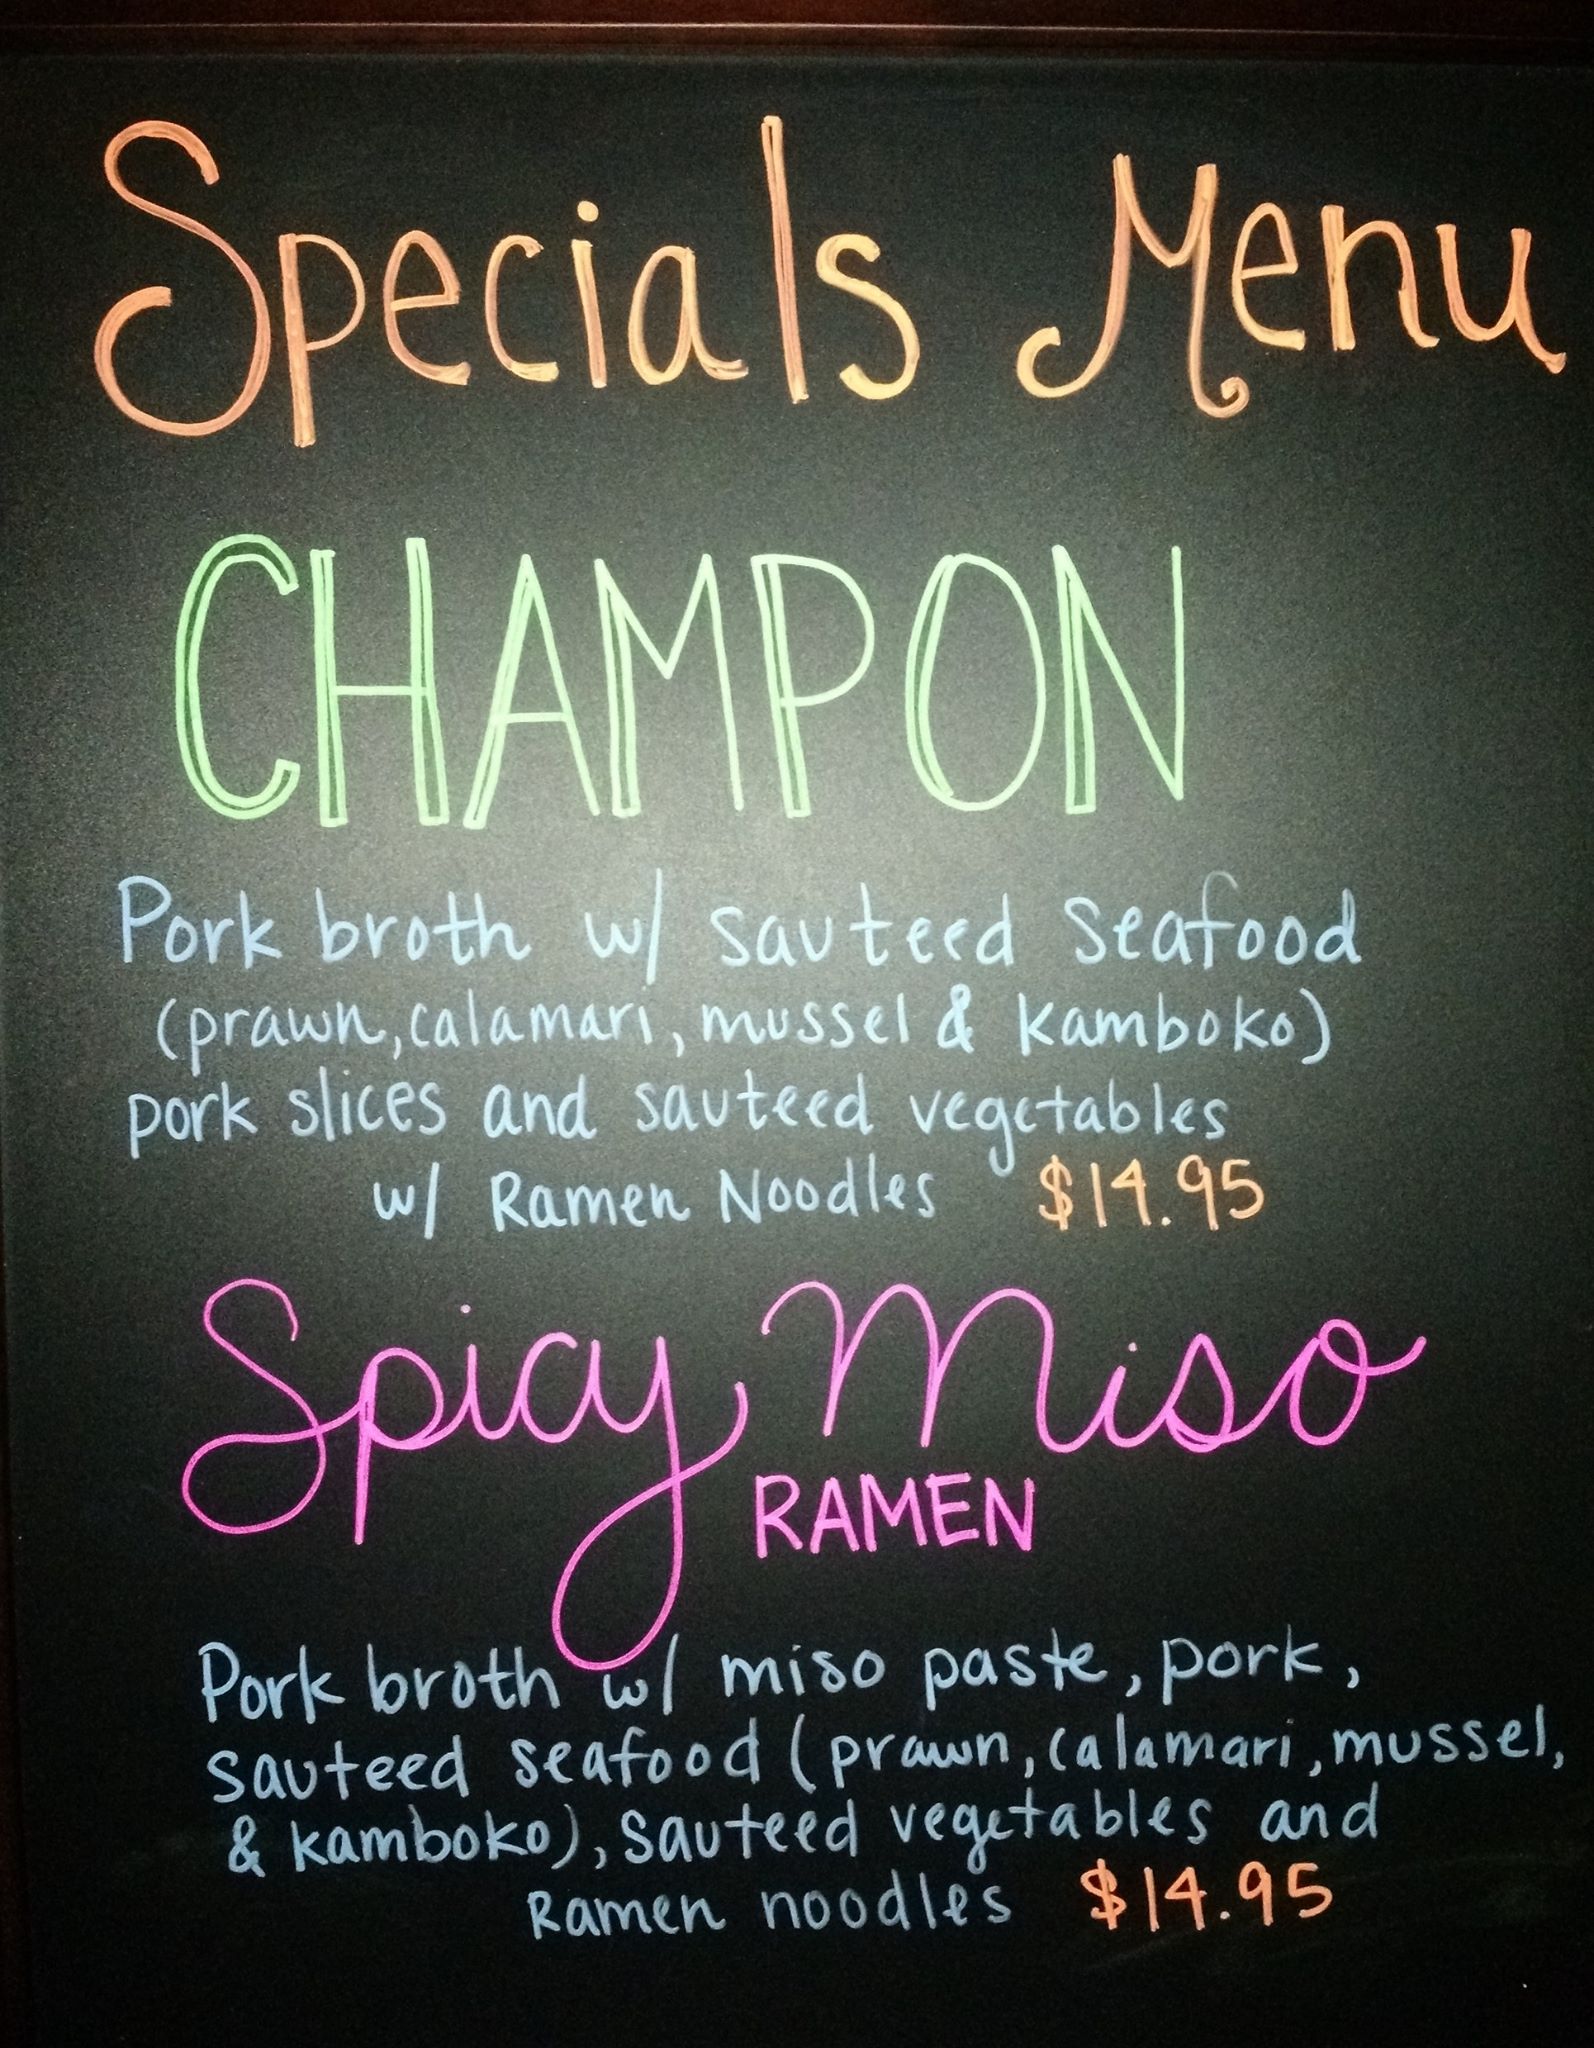 Specials Menu
CHAMPON
Pork broth w/ sauteed seafood
(prawn, calamari, mussel & kamboko)
pork slices and sauteed vegetables
w/ Ramen Noodles $14.95
Spicy Miso
RAMEN
Pork broth w/ miso paste, pork,
sauteed seafood (prawn, calamari, mussel,
& kamboko), sauteed vegetables and
Ramen noodles $14.95